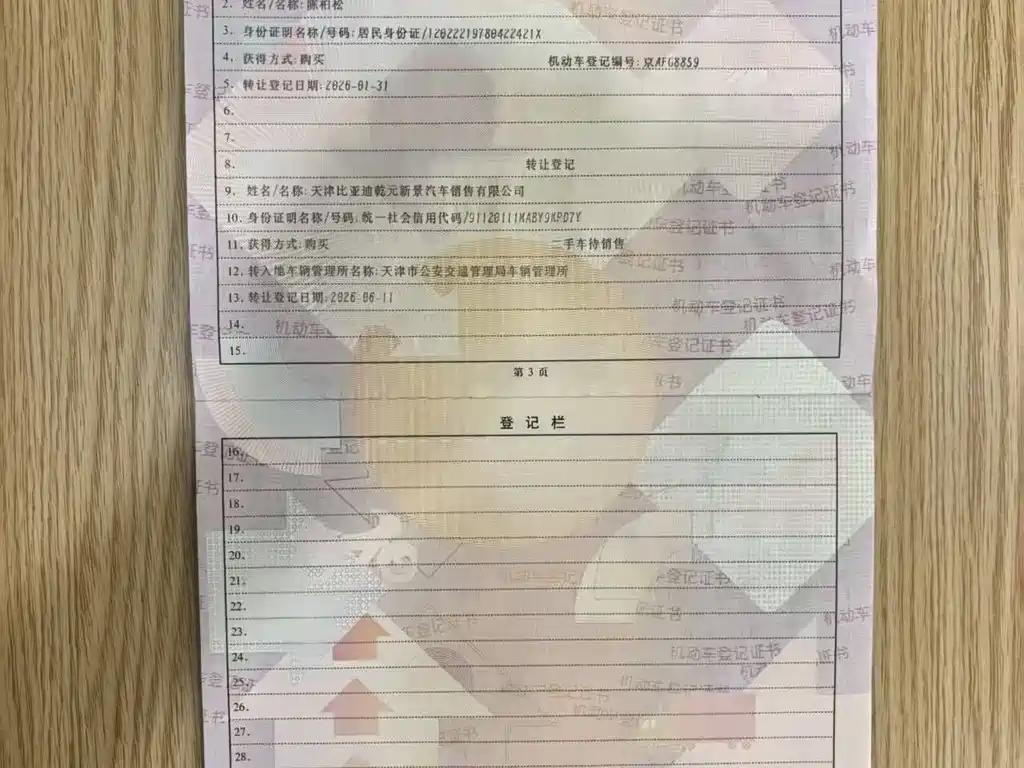 2. 姓名/名称: 陈柏松
3. 身份证明名称/号码: 居民身份证/12022219780422421X
4. 获得方式: 购买 机动车登记编号: 京AFG8859
5. 转让登记日期: 2026-01-31
6.
7.
8. 转让登记
9. 姓名/名称: 天津比亚迪乾元新景汽车销售有限公司
10. 身份证明名称/号码: 统一社会信用代码/91120111MABY9KPD7Y
11. 获得方式: 购买 二手车待销售
12. 转入地车辆管理所名称: 天津市公安交通管理局车辆管理所
13. 转让登记日期: 2026-06-11
14.
15.
第 3 页
登 记 栏
16.
17.
18.
19.
20.
21.
22.
23.
24.
25.
26.
27.
28.
机动车登记证书